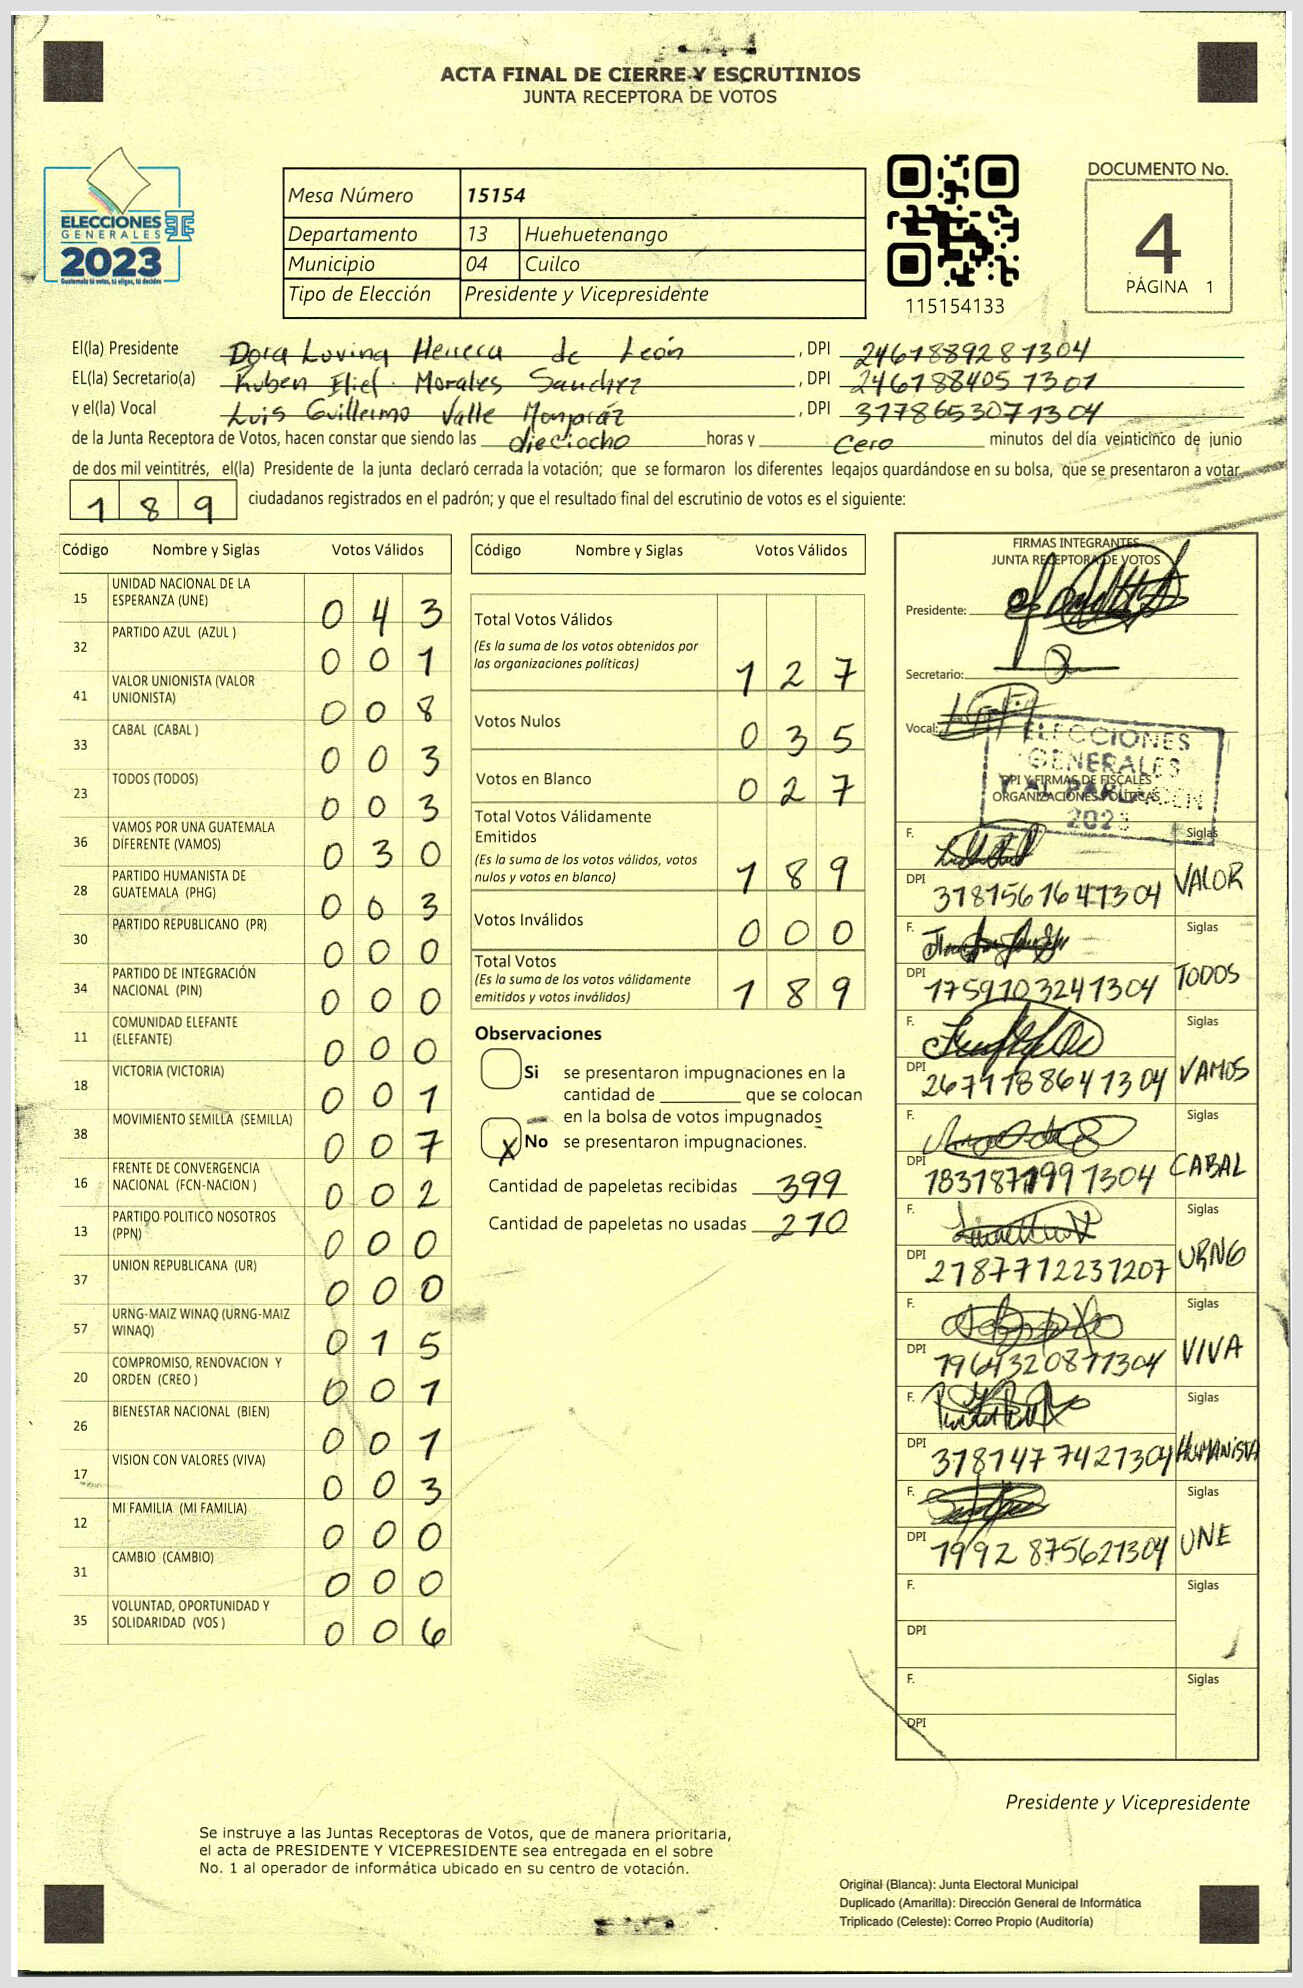 ACTA FINAL DE CIERRE Y ESCRUTINIOS
JUNTA RECEPTORA DE VOTOS
ELECCIONES
GENERALES
2023
Guatemala tú votas, tú eliges, tú decides
Mesa Número 15154
Departamento 13 Huehuetenango
Municipio 04 Cuilco
Tipo de Elección Presidente y Vicepresidente
115154133
DOCUMENTO No.
4
PÁGINA 1
El(la) Presidente Dora Lovina Herrera de León , DPI 2461889281304
EL(la) Secretario(a) Ruben Eliel Morales Sanchez , DPI 2461884051301
y el(la) Vocal Luis Guillermo Valle Monjaráz , DPI 3178653071304
de la Junta Receptora de Votos, hacen constar que siendo las dieciocho horas y Cero minutos del día veinticinco de junio
de dos mil veintitrés, el(la) Presidente de la junta declaró cerrada la votación; que se formaron los diferentes legajos guardándose en su bolsa, que se presentaron a votar
189 ciudadanos registrados en el padrón; y que el resultado final del escrutinio de votos es el siguiente:
Código Nombre y Siglas Votos Válidos
15 UNIDAD NACIONAL DE LA ESPERANZA (UNE) 043
32 PARTIDO AZUL (AZUL ) 001
41 VALOR UNIONISTA (VALOR UNIONISTA) 008
33 CABAL (CABAL ) 003
23 TODOS (TODOS) 003
36 VAMOS POR UNA GUATEMALA DIFERENTE (VAMOS) 030
28 PARTIDO HUMANISTA DE GUATEMALA (PHG) 003
30 PARTIDO REPUBLICANO (PR) 000
34 PARTIDO DE INTEGRACIÓN NACIONAL (PIN) 000
11 COMUNIDAD ELEFANTE (ELEFANTE) 000
18 VICTORIA (VICTORIA) 001
38 MOVIMIENTO SEMILLA (SEMILLA) 007
16 FRENTE DE CONVERGENCIA NACIONAL (FCN-NACION ) 002
13 PARTIDO POLITICO NOSOTROS (PPN) 000
37 UNION REPUBLICANA (UR) 000
57 URNG-MAIZ WINAQ (URNG-MAIZ WINAQ) 015
20 COMPROMISO, RENOVACION Y ORDEN (CREO ) 001
26 BIENESTAR NACIONAL (BIEN) 001
17 VISION CON VALORES (VIVA) 003
12 MI FAMILIA (MI FAMILIA) 000
31 CAMBIO (CAMBIO) 000
35 VOLUNTAD, OPORTUNIDAD Y SOLIDARIDAD (VOS ) 006
Código Nombre y Siglas Votos Válidos
Total Votos Válidos
(Es la suma de los votos obtenidos por
las organizaciones políticas) 127
Votos Nulos 035
Votos en Blanco 027
Total Votos Válidamente
Emitidos
(Es la suma de los votos válidos, votos
nulos y votos en blanco) 189
Votos Inválidos 000
Total Votos
(Es la suma de los votos válidamente
emitidos y votos inválidos) 189
Observaciones
Si se presentaron impugnaciones en la
cantidad de ________ que se colocan
en la bolsa de votos impugnados
X No se presentaron impugnaciones.
Cantidad de papeletas recibidas 399
Cantidad de papeletas no usadas 210
FIRMAS INTEGRANTES
JUNTA RECEPTORA DE VOTOS
Presidente:
Secretario:
Vocal:
ELECCIONES
GENERALES
Y AL PARLACEN
2023
DPI Y FIRMAS DE FISCALES
ORGANIZACIONES POLÍTICAS
F. Siglas
DPI 3781561641304 VALOR
F. Siglas
DPI 1759103241304 TODOS
F. Siglas
DPI 2671188641304 VAMOS
F. Siglas
DPI 1304 CABAL
F. Siglas
DPI 2187712231207 URNG
F. Siglas
DPI 1964320871304 VIVA
F. Siglas
DPI 3781477421304 HUMANISTA
F. Siglas
DPI 1992875621304 UNE
F. Siglas
DPI
F. Siglas
DPI
Presidente y Vicepresidente
Se instruye a las Juntas Receptoras de Votos, que de manera prioritaria,
el acta de PRESIDENTE Y VICEPRESIDENTE sea entregada en el sobre
No. 1 al operador de informática ubicado en su centro de votación.
Original (Blanca): Junta Electoral Municipal
Duplicado (Amarilla): Dirección General de Informática
Triplicado (Celeste): Correo Propio (Auditoría)